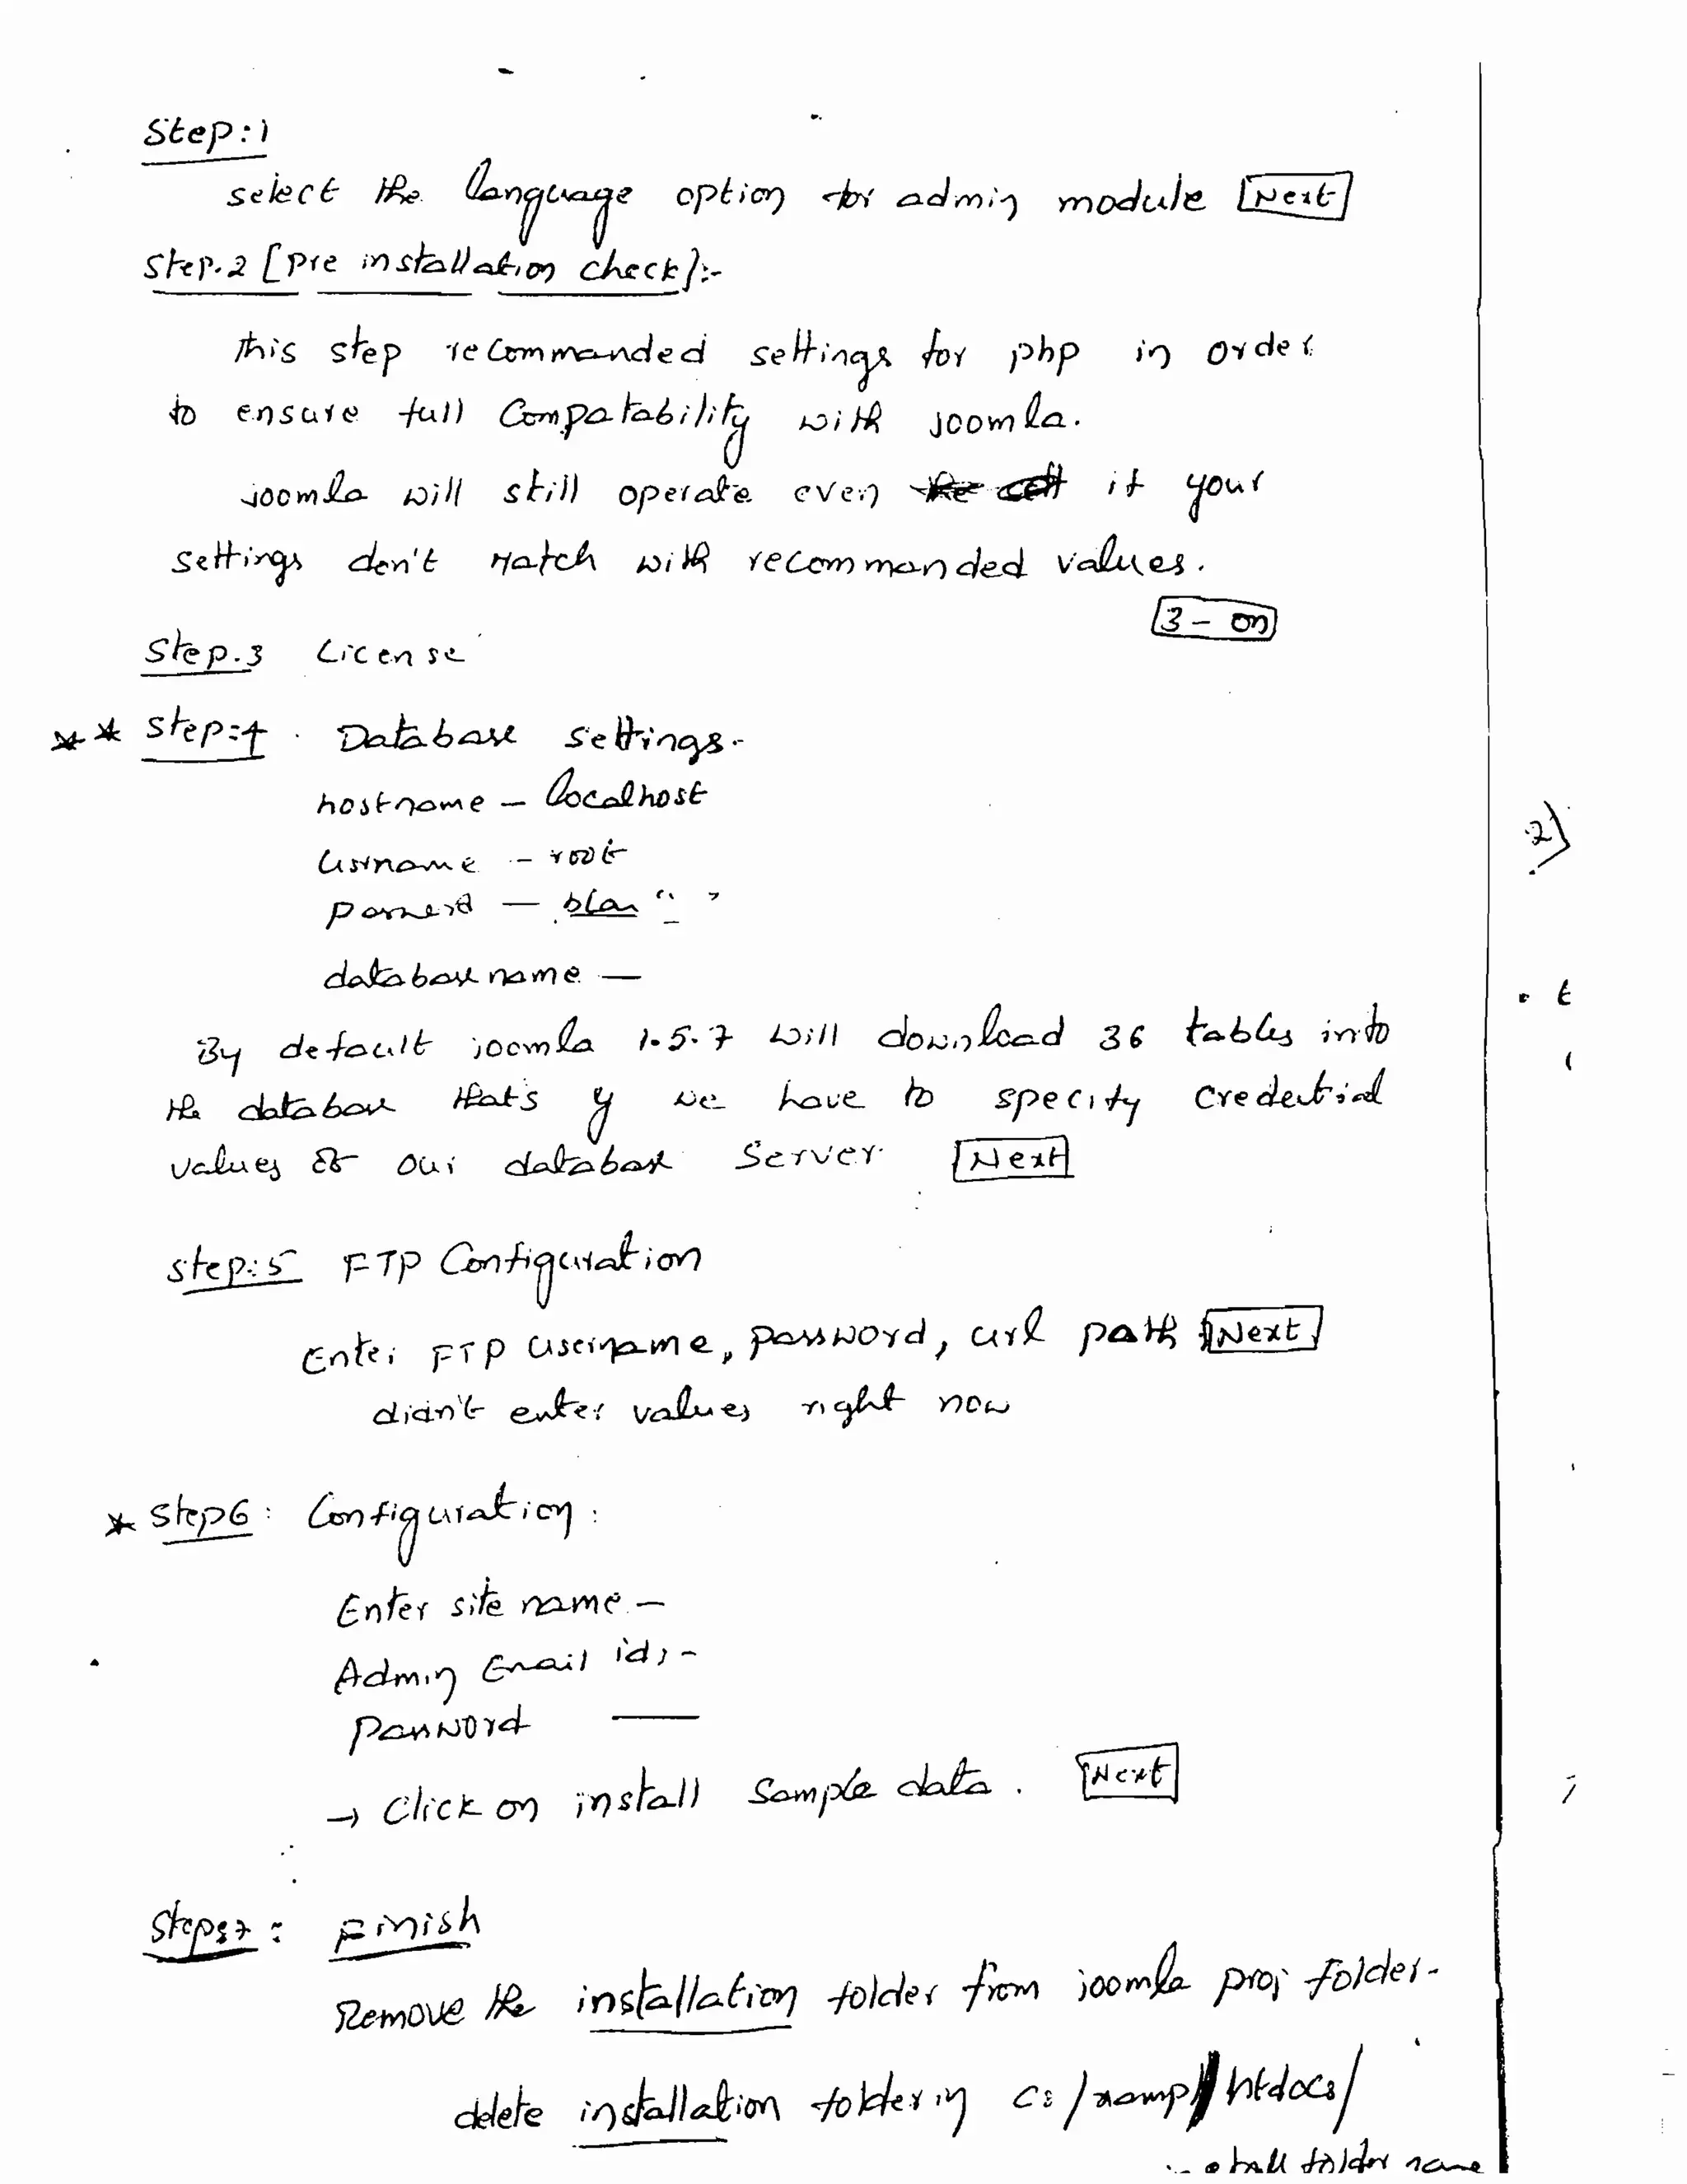 Step:1
select the language option for admin module Next
Step.2 [pre installation check]:-
this step recommanded settings for php in order
to ensure full Compatability with joomla.
joomla will still operate even if your
settings don't Match with recommanded values.
3 - on
Step.3 License
** Step:4 . Database settings.-
hostname - localhost
Usrname - root
password - blan " "
database name -
By default joomla 1.5.7 will download 36 tables into
the database that's y we have to specify credential
values of our database Server. Next
step:5 FTP Configuration
Enter FTP Username, password, url path Next
didn't enter values right now
* Step6: Configuration:
Enter site name -
Admin Email id: -
password —
→ Click on install Sample data. Next
Step:7: Finish
Remove the installation folder from joomla proj folder.
delete installation folder in C:/xamp/htdocs/
install folder name
2)
t